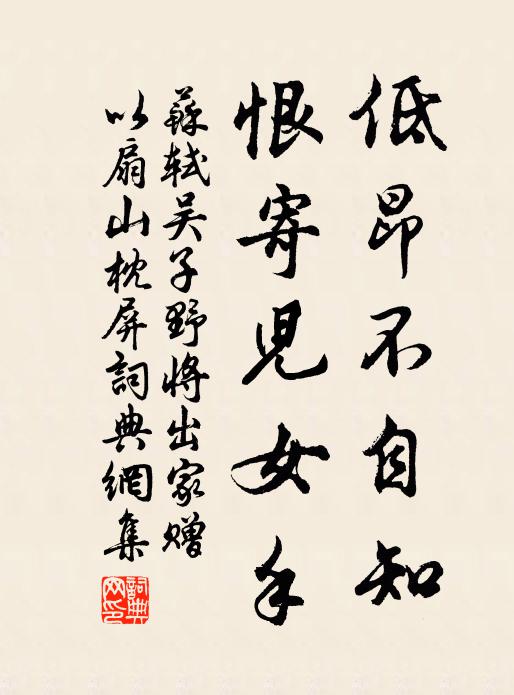 低昂不自知
恨寄兒女手
蘇軾吴子野將出家贈
以扇山枕屏詞典網集
詞典網印